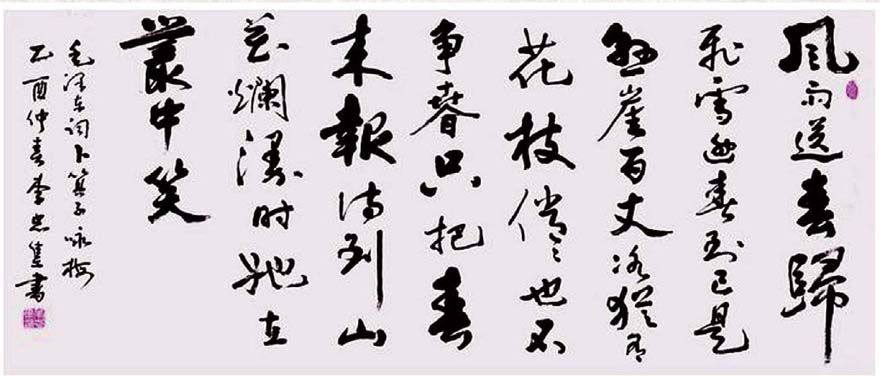 風雨送春歸
飛雪迎春到已是
懸崖百丈冰猶有
花枝俏々也不
争春只把春
来報待到山
花爛漫时她在
叢中笑
毛泽东词卜算子咏梅
乙酉仲春李忠書